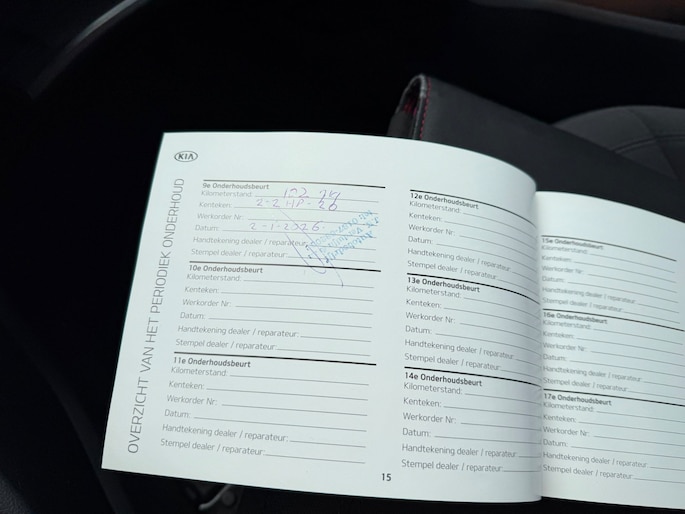 KIA
OVERZICHT VAN HET PERIODIEK ONDERHOUD
9e Onderhoudsbeurt
Kilometerstand:
Kenteken:
Werkorder Nr:
Datum: 2-1-2026
Handtekening dealer / reparateur:
Stempel dealer / reparateur:
10e Onderhoudsbeurt
Kilometerstand:
Kenteken:
Werkorder Nr:
Datum:
Handtekening dealer / reparateur:
Stempel dealer / reparateur:
11e Onderhoudsbeurt
Kilometerstand:
Kenteken:
Werkorder Nr:
Datum:
Handtekening dealer / reparateur:
Stempel dealer / reparateur:
12e Onderhoudsbeurt
Kilometerstand:
Kenteken:
Werkorder Nr:
Datum:
Handtekening dealer / reparateur:
Stempel dealer / reparateur:
13e Onderhoudsbeurt
Kilometerstand:
Kenteken:
Werkorder Nr:
Datum:
Handtekening dealer / reparateur:
Stempel dealer / reparateur:
14e Onderhoudsbeurt
Kilometerstand:
Kenteken:
Werkorder Nr:
Datum:
Handtekening dealer / reparateur:
Stempel dealer / reparateur:
15
15e Onderhoudsbeurt
Kilometerstand:
Kenteken:
Werkorder Nr:
Datum:
Handtekening dealer / reparateur:
Stempel dealer / reparateur:
16e Onderhoudsbeurt
Kilometerstand:
Kenteken:
Werkorder Nr:
Datum:
Handtekening dealer / reparateur:
Stempel dealer / reparateur:
17e Onderhoudsbeurt
Kilometerstand:
Kenteken:
Werkorder Nr:
Datum:
Handtekening dealer / reparateur:
Stempel dealer / reparateur: